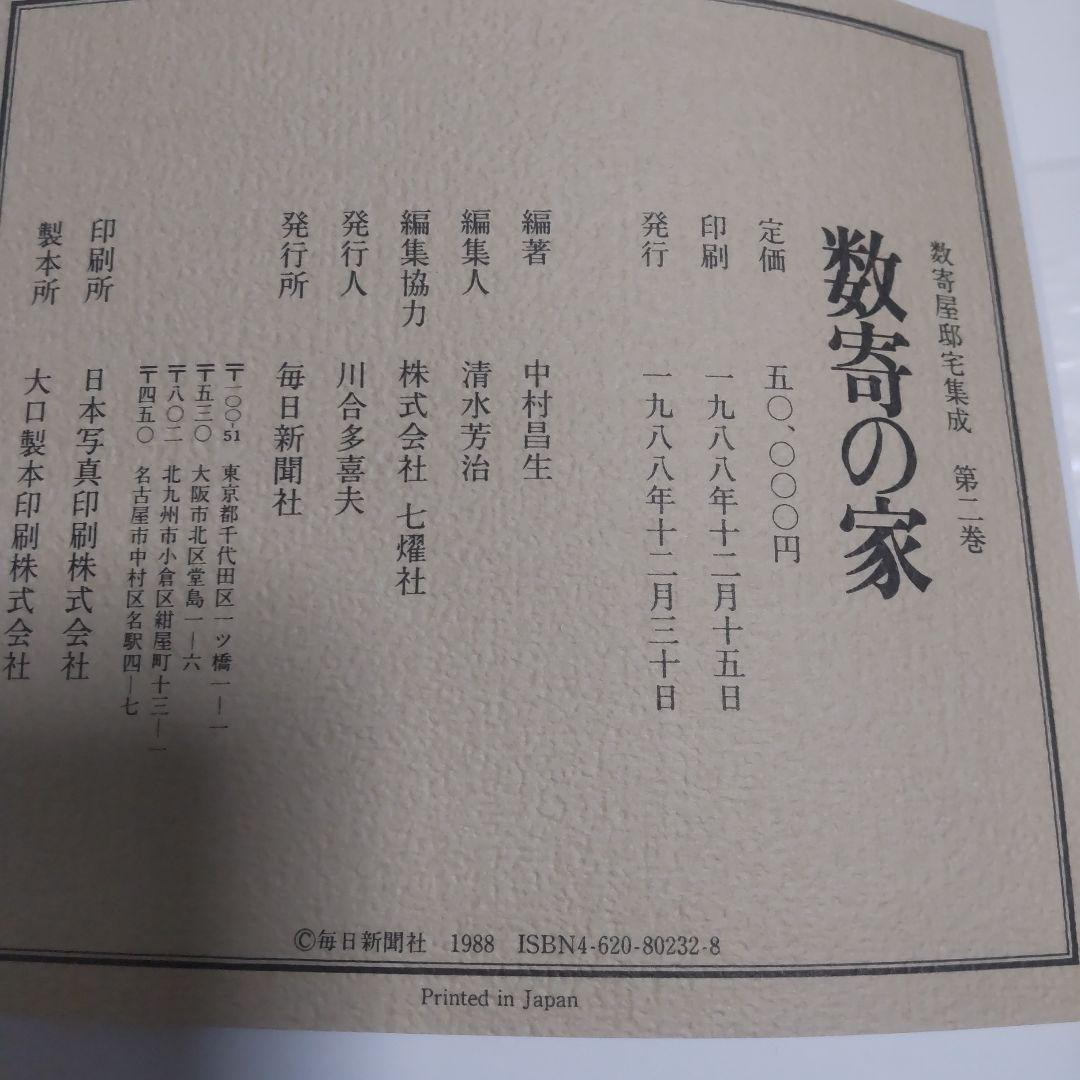 数寄屋邸宅集成　第二巻
数寄の家
定価　五〇、〇〇〇円
印刷　一九八八年十二月十五日
発行　一九八八年十二月三十日
編著　中村昌生
編集人　清水芳治
編集協力　株式会社 七燿社
発行人　川合多喜夫
発行所　毎日新聞社
〒一〇〇-51　東京都千代田区一ツ橋一―一
〒五三〇　大阪市北区堂島一―六
〒八〇二　北九州市小倉区紺屋町十三―一
〒四五〇　名古屋市中村区名駅四―七
印刷所　日本写真印刷株式会社
製本所　大口製本印刷株式会社
©毎日新聞社　1988　ISBN4-620-80232-8
Printed in Japan